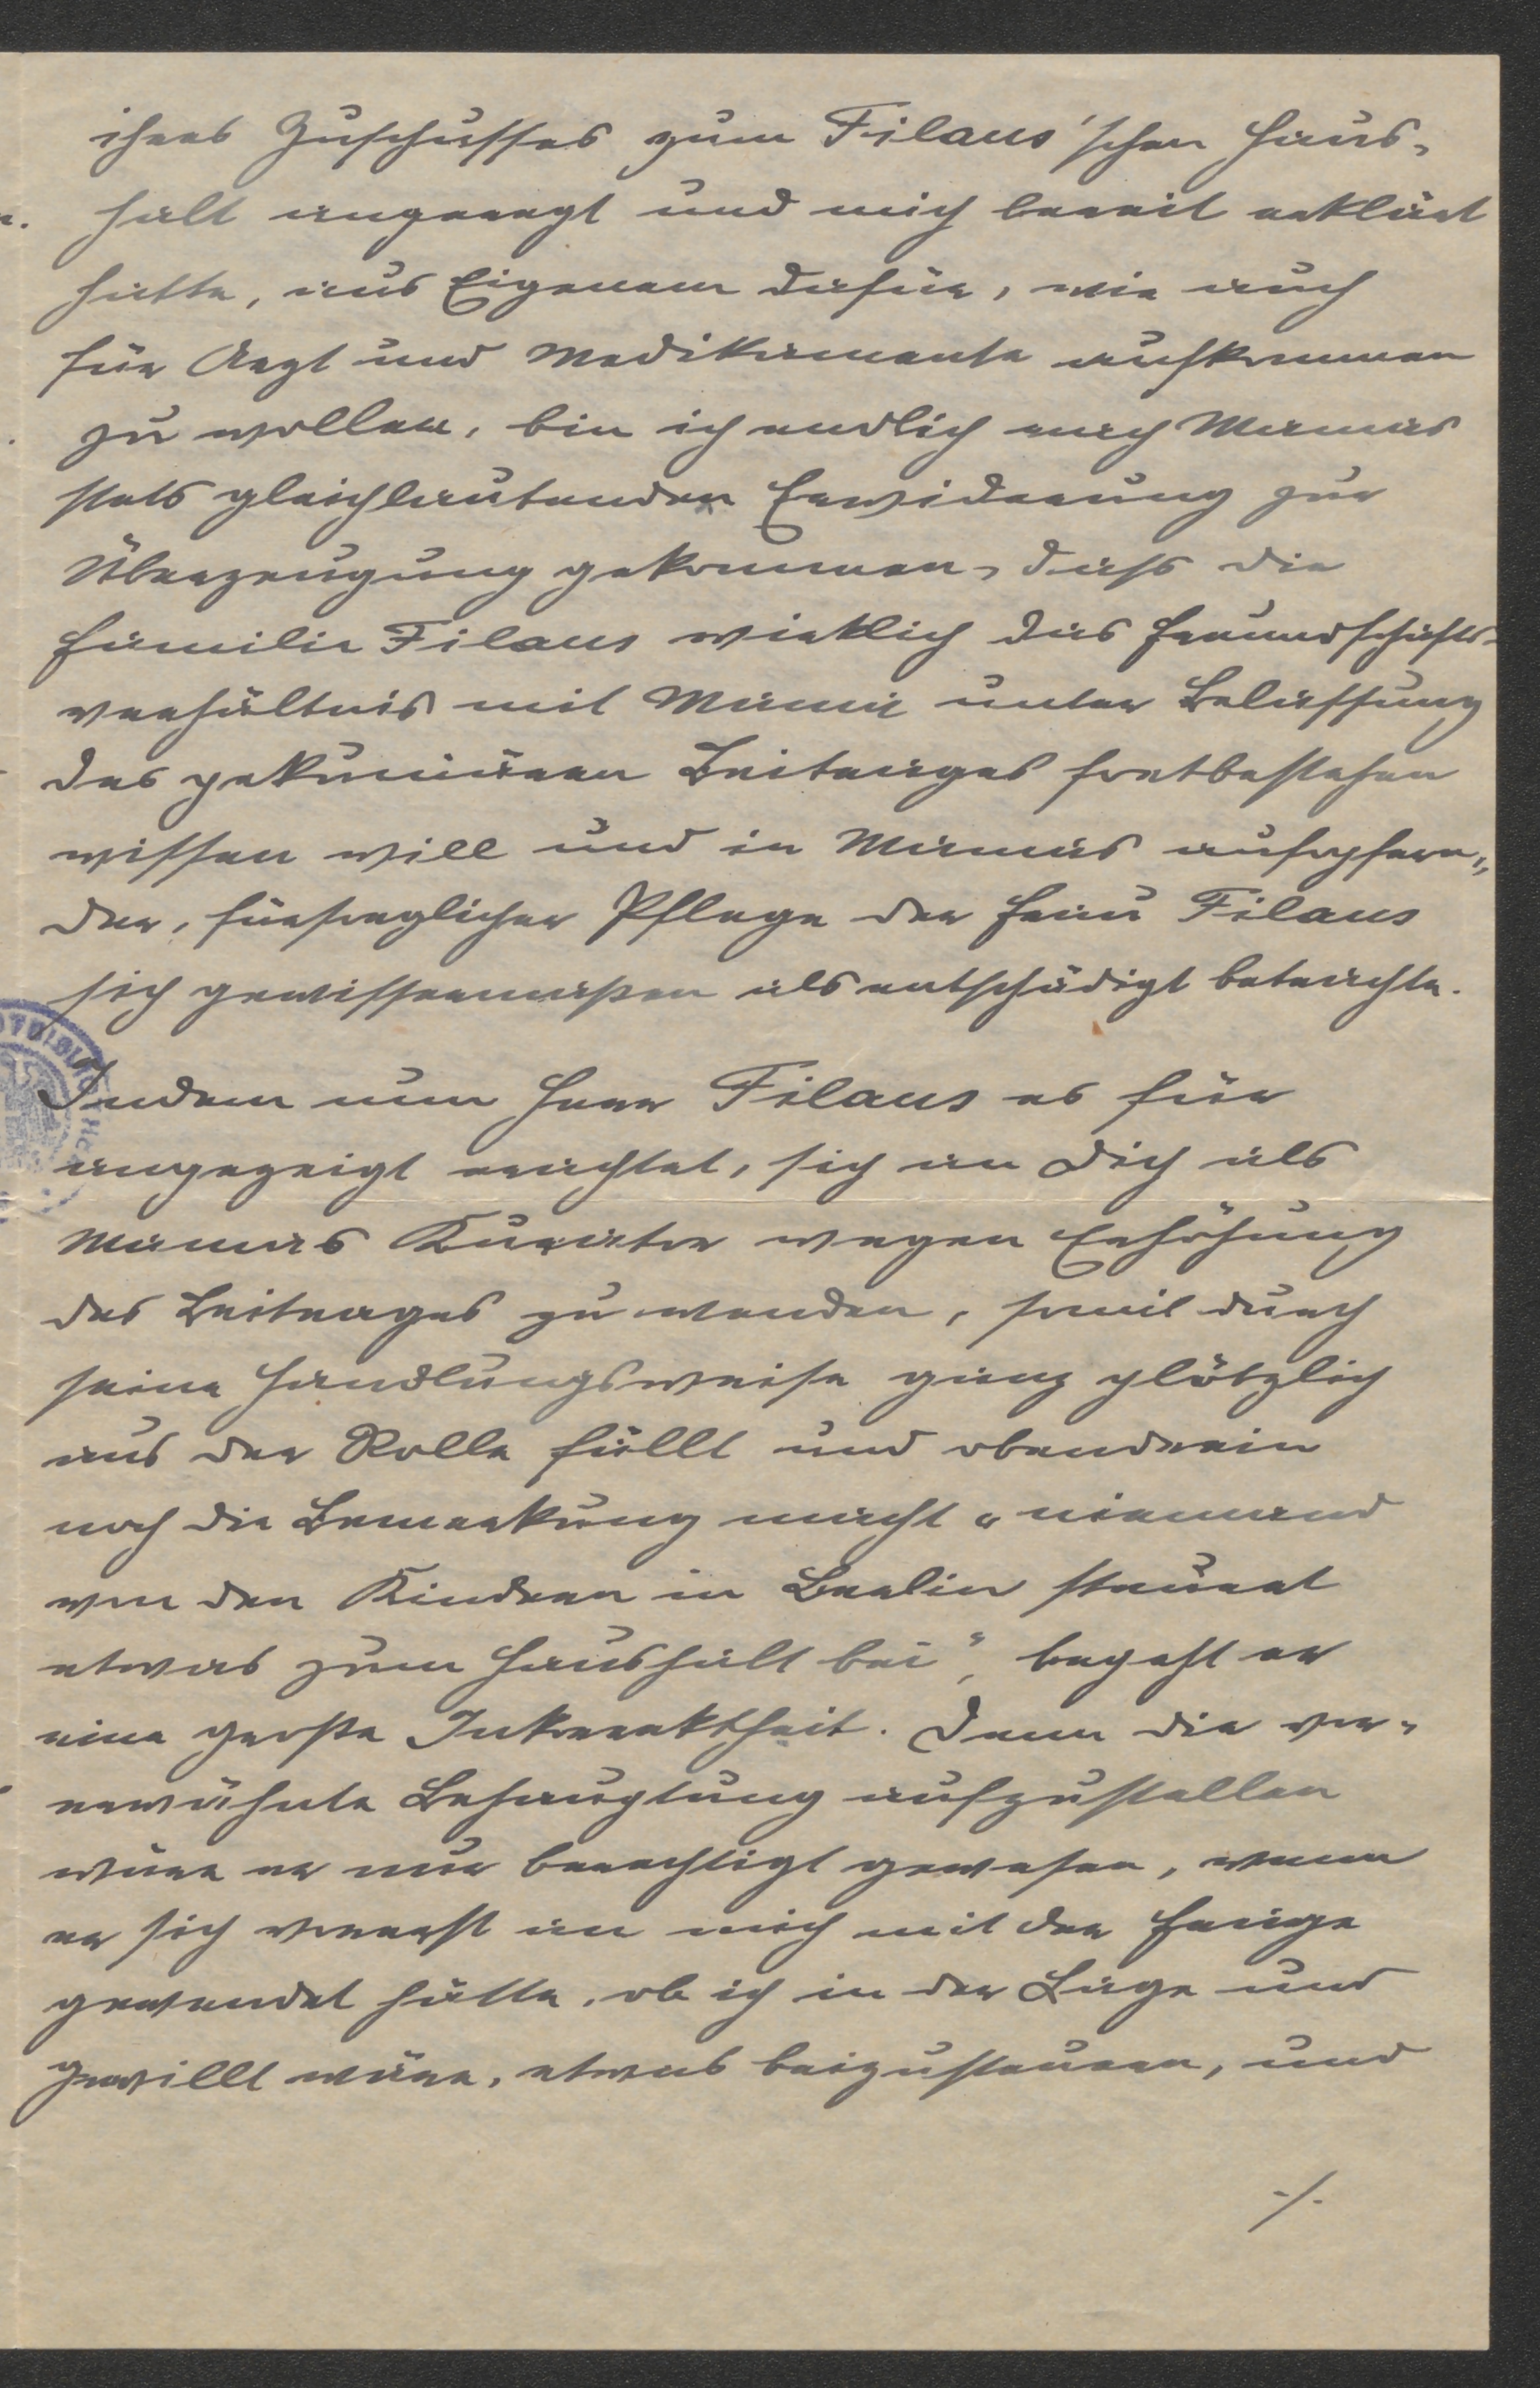 ihres Zuschusses zum Filaus'schen Haus-
halt angeregt und mich bereit erklärt
hatte, aus Eigenem dafür, wie auch
für Arzt und Medikamente aufkommen
zu wollen, bin ich endlich nach Mamas
stets gleichlautenden Erwiderung zur
Überzeugung gekommen, dass die
Familie Filaus wirklich das Freundschafts-
verhältnis mit Mama unter Belassung
des pekuniären Beitrages fortbestehen
wissen will und in Mamas aufopfern-
der, fürsorglicher Pflege der Frau Filaus
sich gewissermaßen als entschädigt betrachte.
Indem nun Herr Filaus es für
angezeigt erachtet, sich an Dich als
Mamas Kurator wegen Erhöhung
des Beitrages zu wenden, somit durch
seine Handlungsweise ganz plötzlich
aus der Rolle fällt und obendrein
noch die Bemerkung macht „niemand
von den Kindern in Berlin steuert
etwas zum Haushalt bei", begeht er
eine große Inkorrektheit. Denn die vor-
erwähnte Behauptung aufzustellen
wäre er nur berechtigt gewesen, wenn
er sich vorerst an mich mit der Frage
gewendet hätte, ob ich in der Lage und
gewillt wäre, etwas beizusteuern, und
-/-